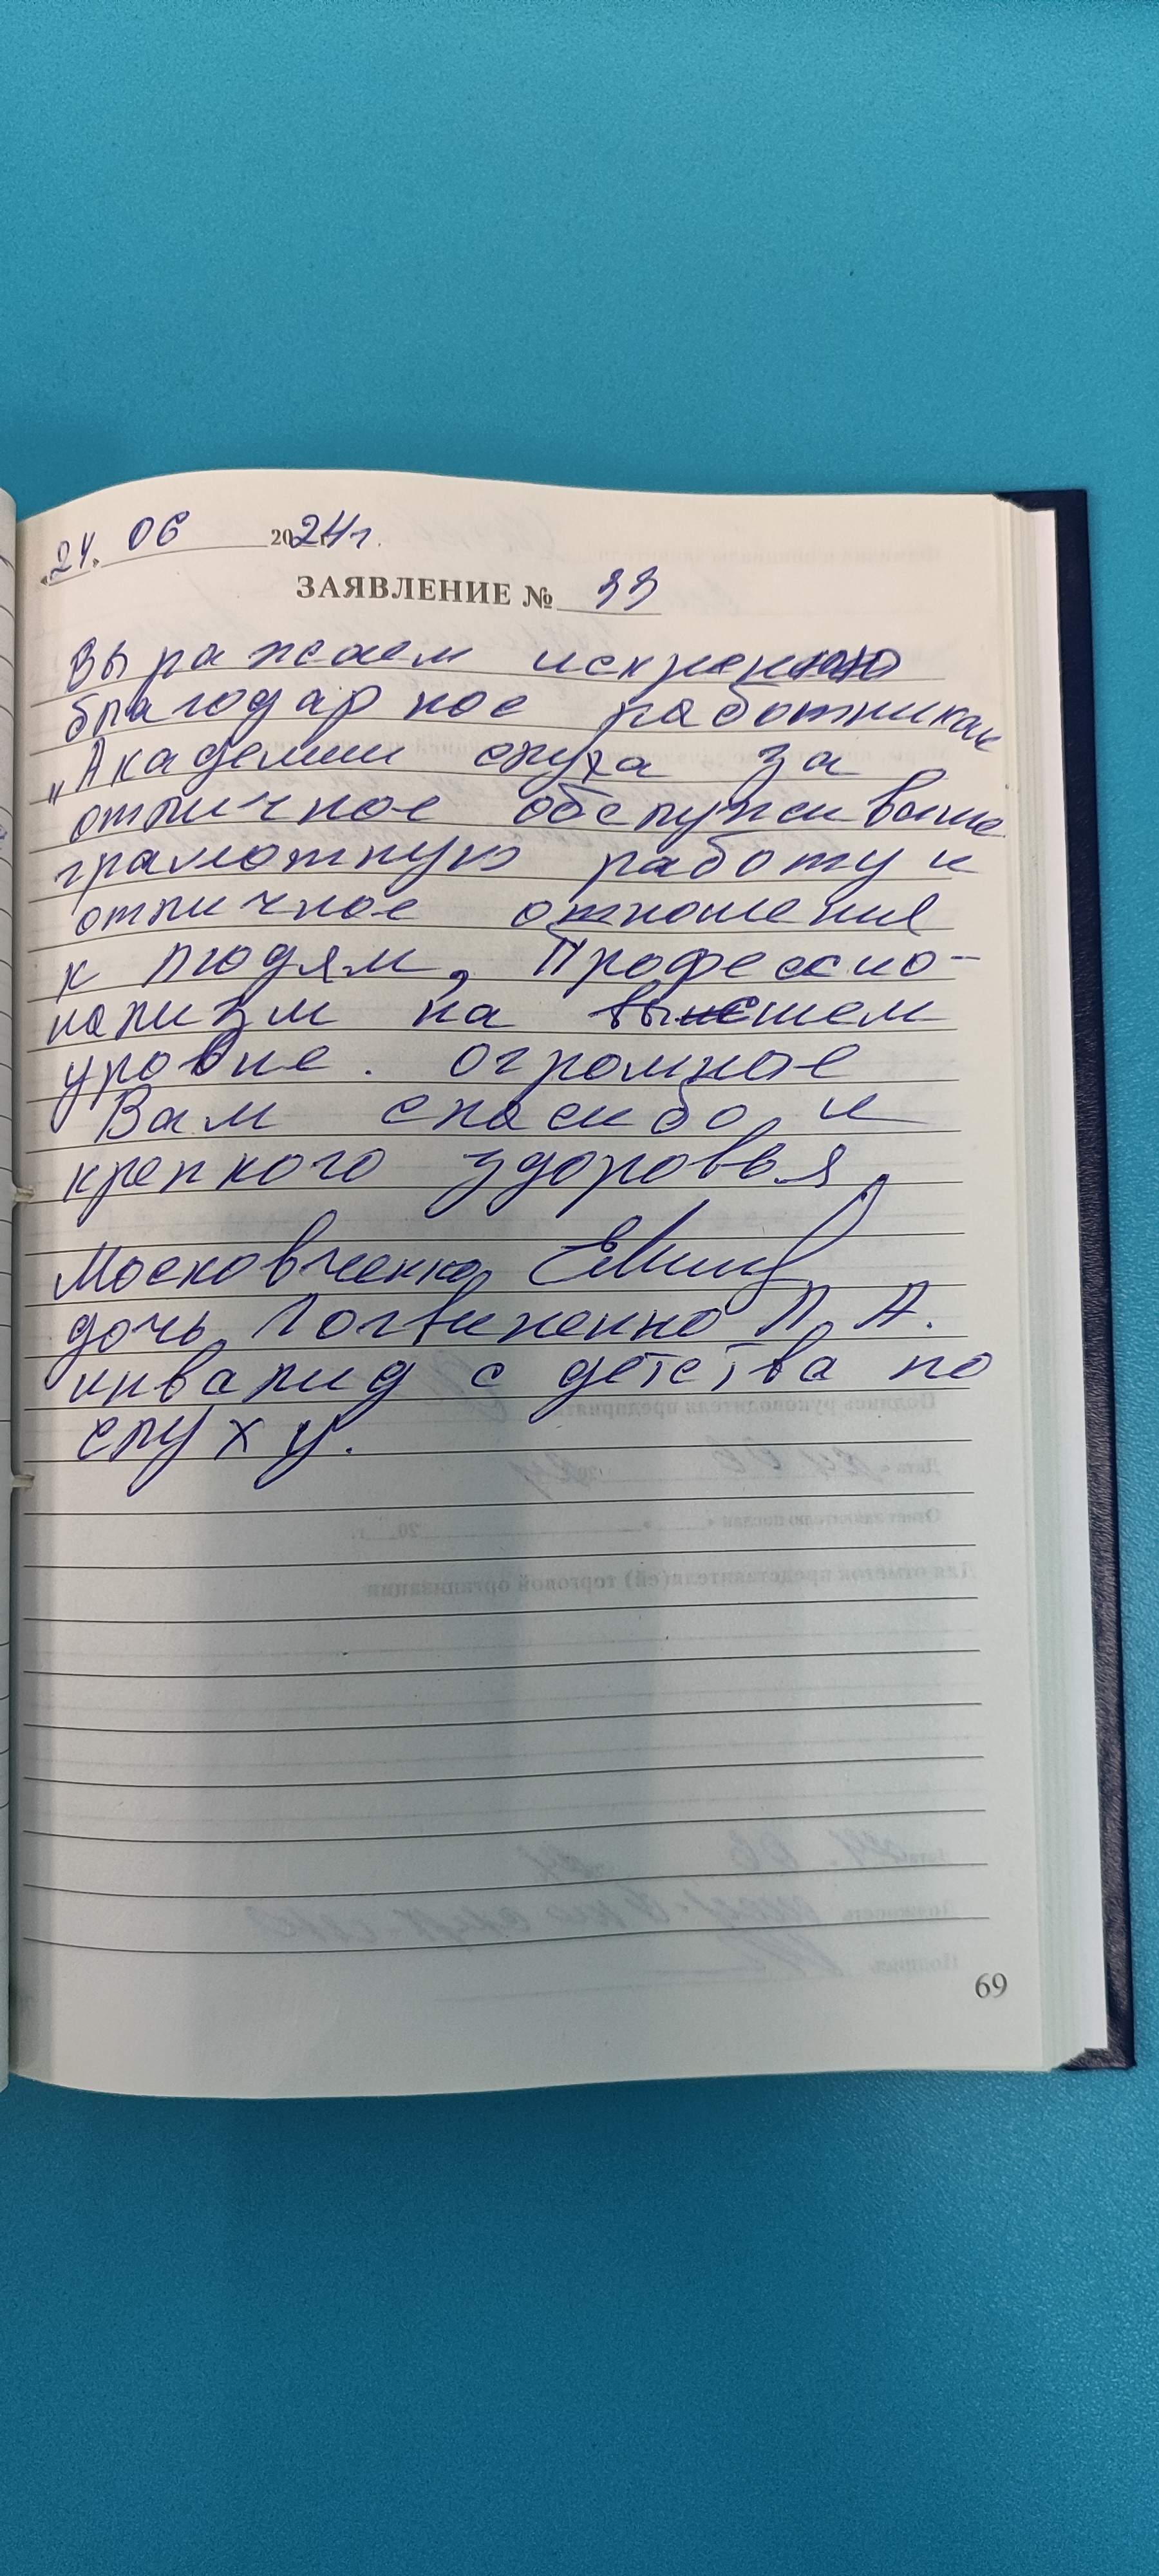 "24." 06 2024г.
ЗАЯВЛЕНИЕ № 33
Выражаем искреннюю
благодарное работникам
„Академии слуха за
отличное обслуживание
грамотную работу и
отличное отношения
к людям, Профессио-
нализм на высшем
уровне. огромное
Вам спасибо и
крепкого здоровья,
Московченко
дочь, Логвиненко Л. А.
инвалид с детства по
слуху.
69